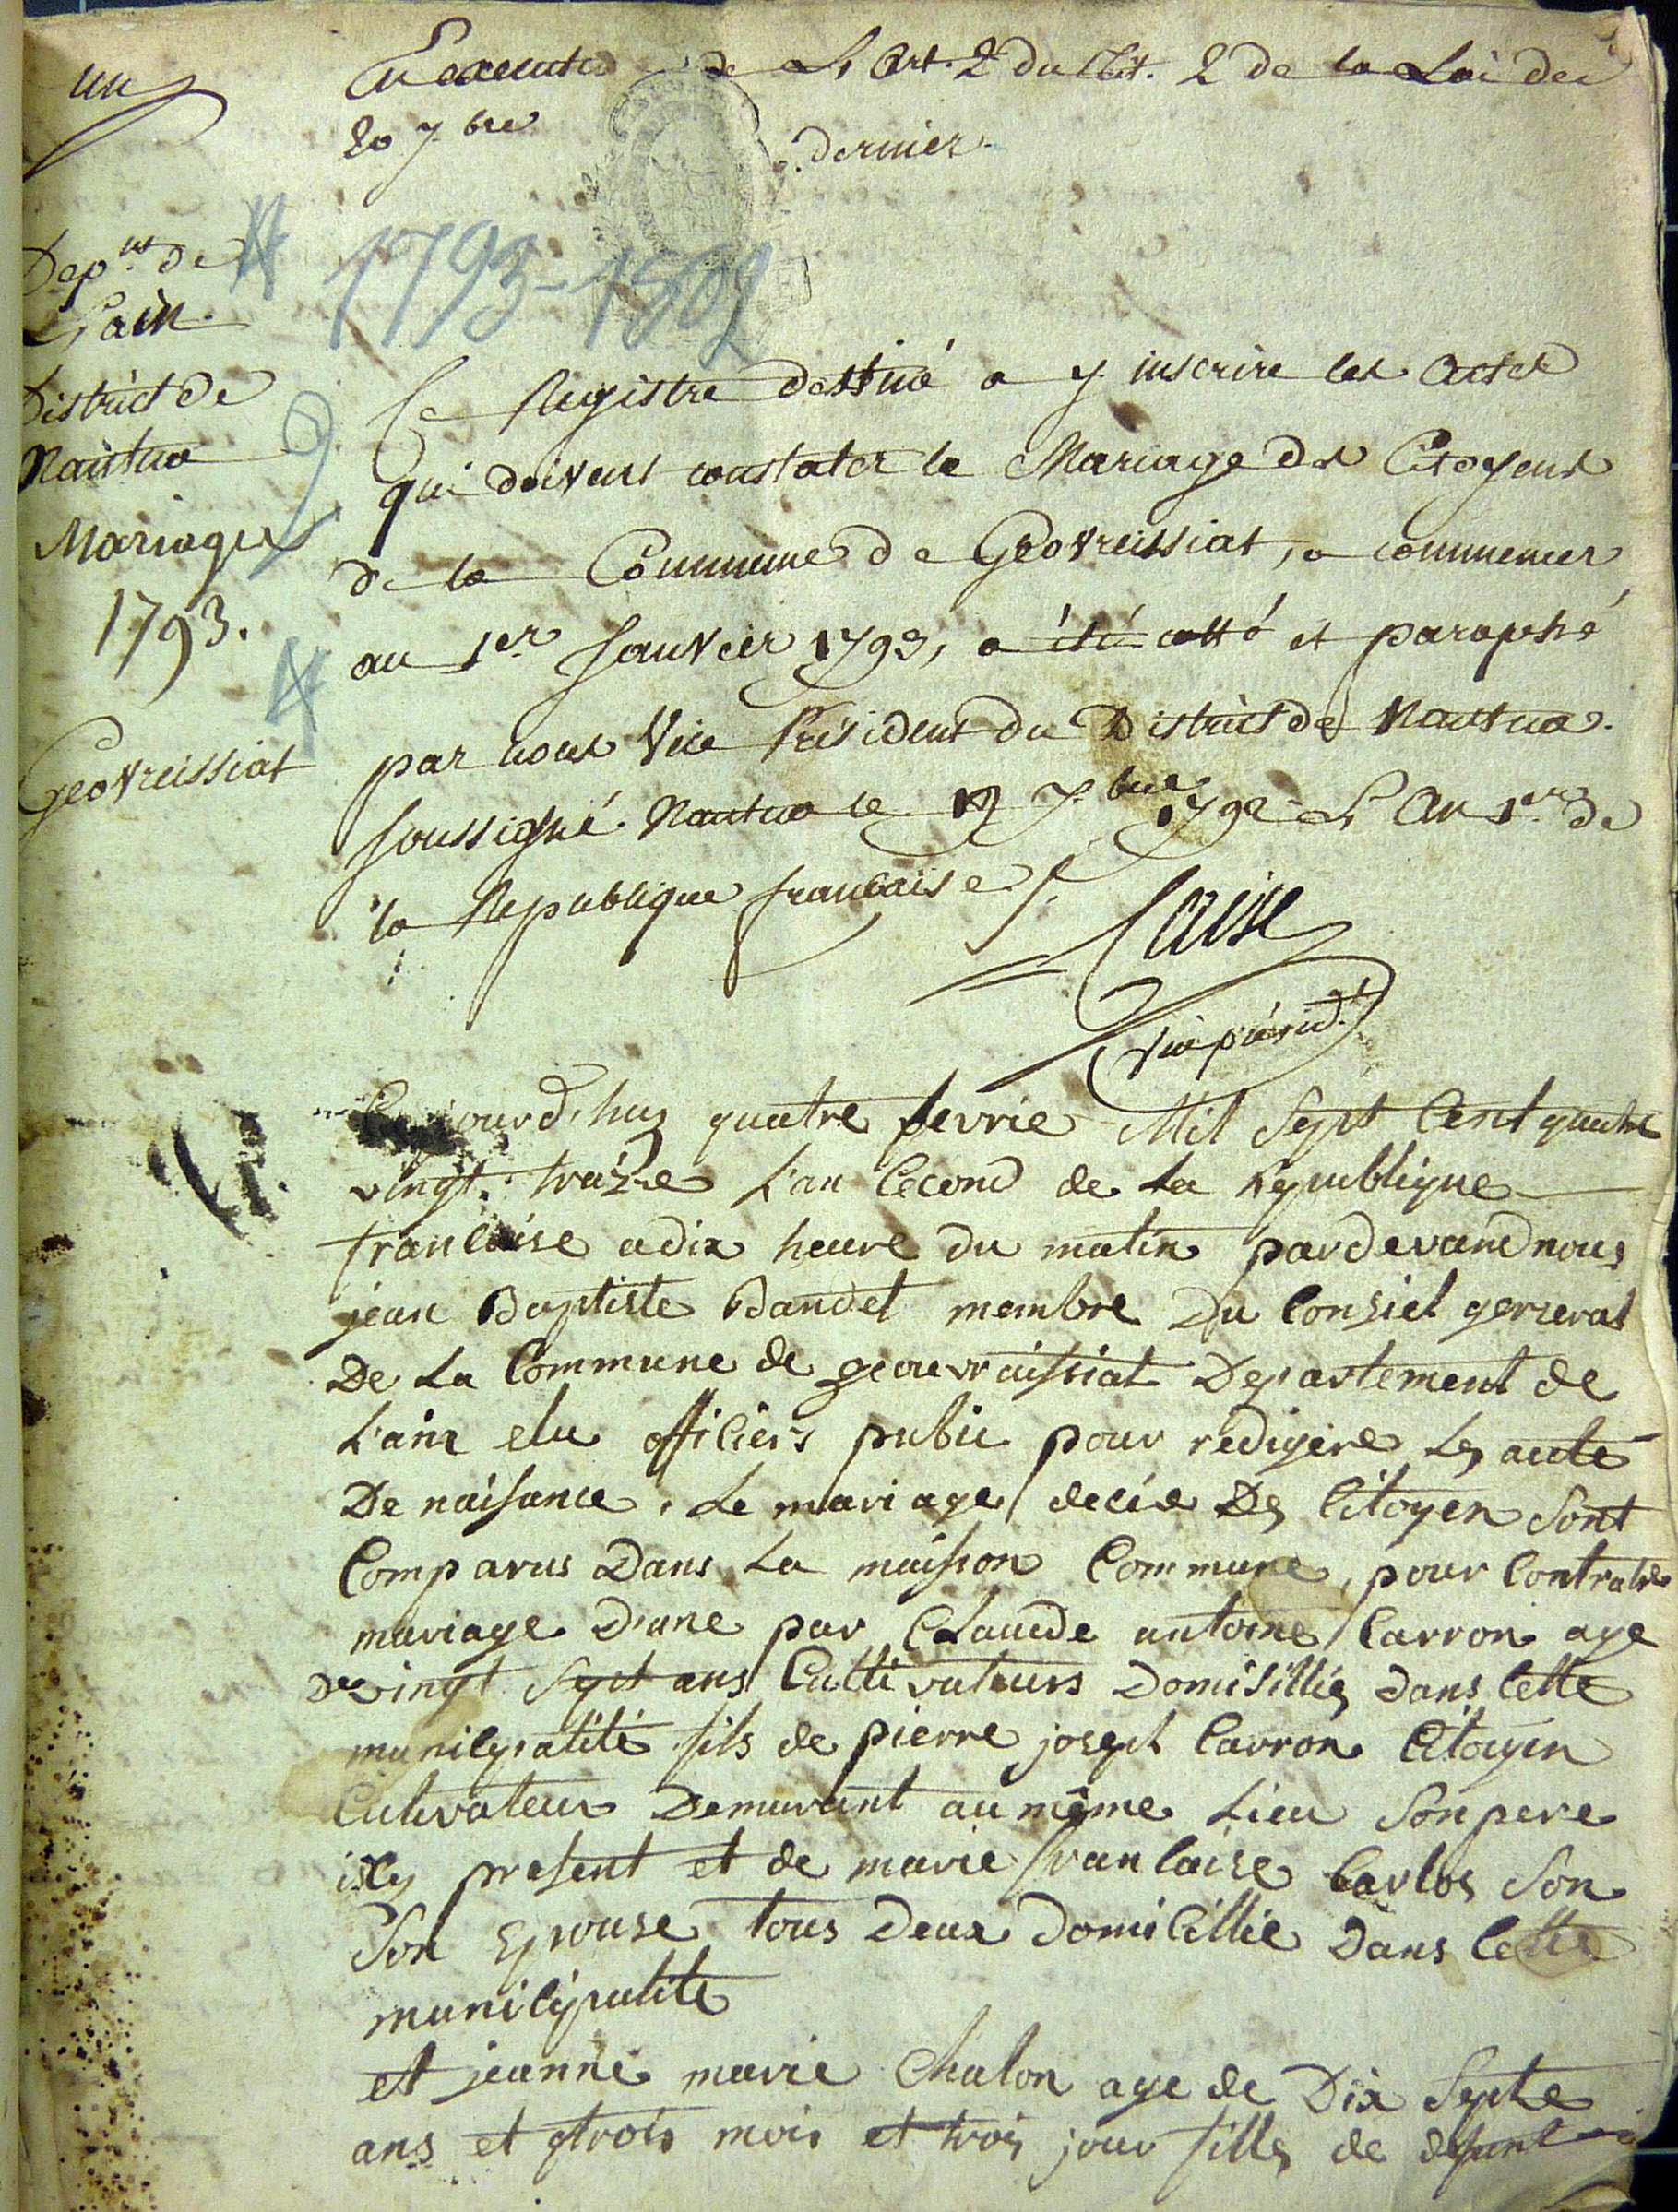 un
En execution de L'Art. 2 du Tit. 2 de la Loi des
20 7.bre dernier.
Dep.nt de
L'ain.
District de
Nantua
Mariages
1793.
Geovreissiat
1793-1802
Ce Registre destiné a y inscrire les Actes
qui doivent constater le Mariage des Citoyens
de la Commune de Geovreissiat, a commencer
au 1er Janvier 1793, a été cotté et paraphé
par nous Vice Président du District de Nantua.
soussigné. Nantua le 7.bre 1792 L'An 1er de
la Republique francaise
vice présid.t
jourd'huy quatre fevrie Mil Sept Cent quatre
vingt. traize L'an Cecond de La Republique
francaise a dix heure du matin pardevand nous
jean Baptiste Bandet membre Du Consiel general
De La Commune de geouvraissiat Departement de
L'ain elu officiers pubic pour redigere Les acte
De naisance, Le mariage decés Des Citoyen Sont
Comparus Dans La maison Commune, pour Contrater
mariage D'une par Claude antoine Carron age
De vingt Sept ans Cultivateurs Domisilliés dans Cette
municipalité fils de pierre joseph Carron Citoyen
Cultivateur Demurant au même Lieu Son pere
icy present et de marie francaise Carlos Son
Son Epouse tous Deux Domicillie Dans Cette
municipalite
et jeanne marie Chalon age de Dix Septe
ans et trois mois et trois jour fille de defunt